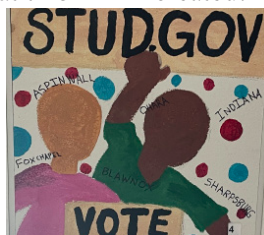 STUD.GOV
ASPINWALL
OHARA
INDIANA
FOXCHAPEL
BLAWNOX
SHARPSBURG
4
VOTE